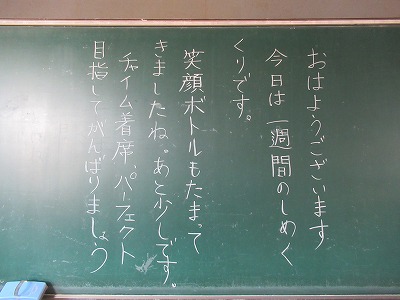 おはようございます
今日は一週間のしめく
くりです。
笑顔ボトルもたまって
きましたね。あと少しです。
チャイム着席、パーフェクト
目指してがんばりましょう